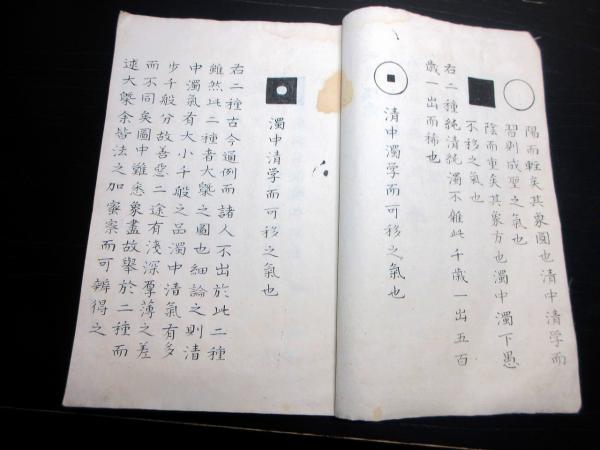 陽而軽矣其象圓也清中清学而
習則成聖之氣也
陰而重矣其象方也濁中濁下愚
不移之氣也
右二種純清純濁不雜此千歳一出五百
歳一出而稀也
清中濁学而可移之氣也
濁中清学而可移之氣也
右二種古今通例而諸人不出於此二種
雖然此二種者大槩之圖也細論之則清
中濁氣有大小千般之品濁中清氣有多
少千般分故善惡二途有淺深厚薄之差
而不同矣圖中難悉象盡故舉於二種而
述大槩余皆法之加蜜察而可辨得之